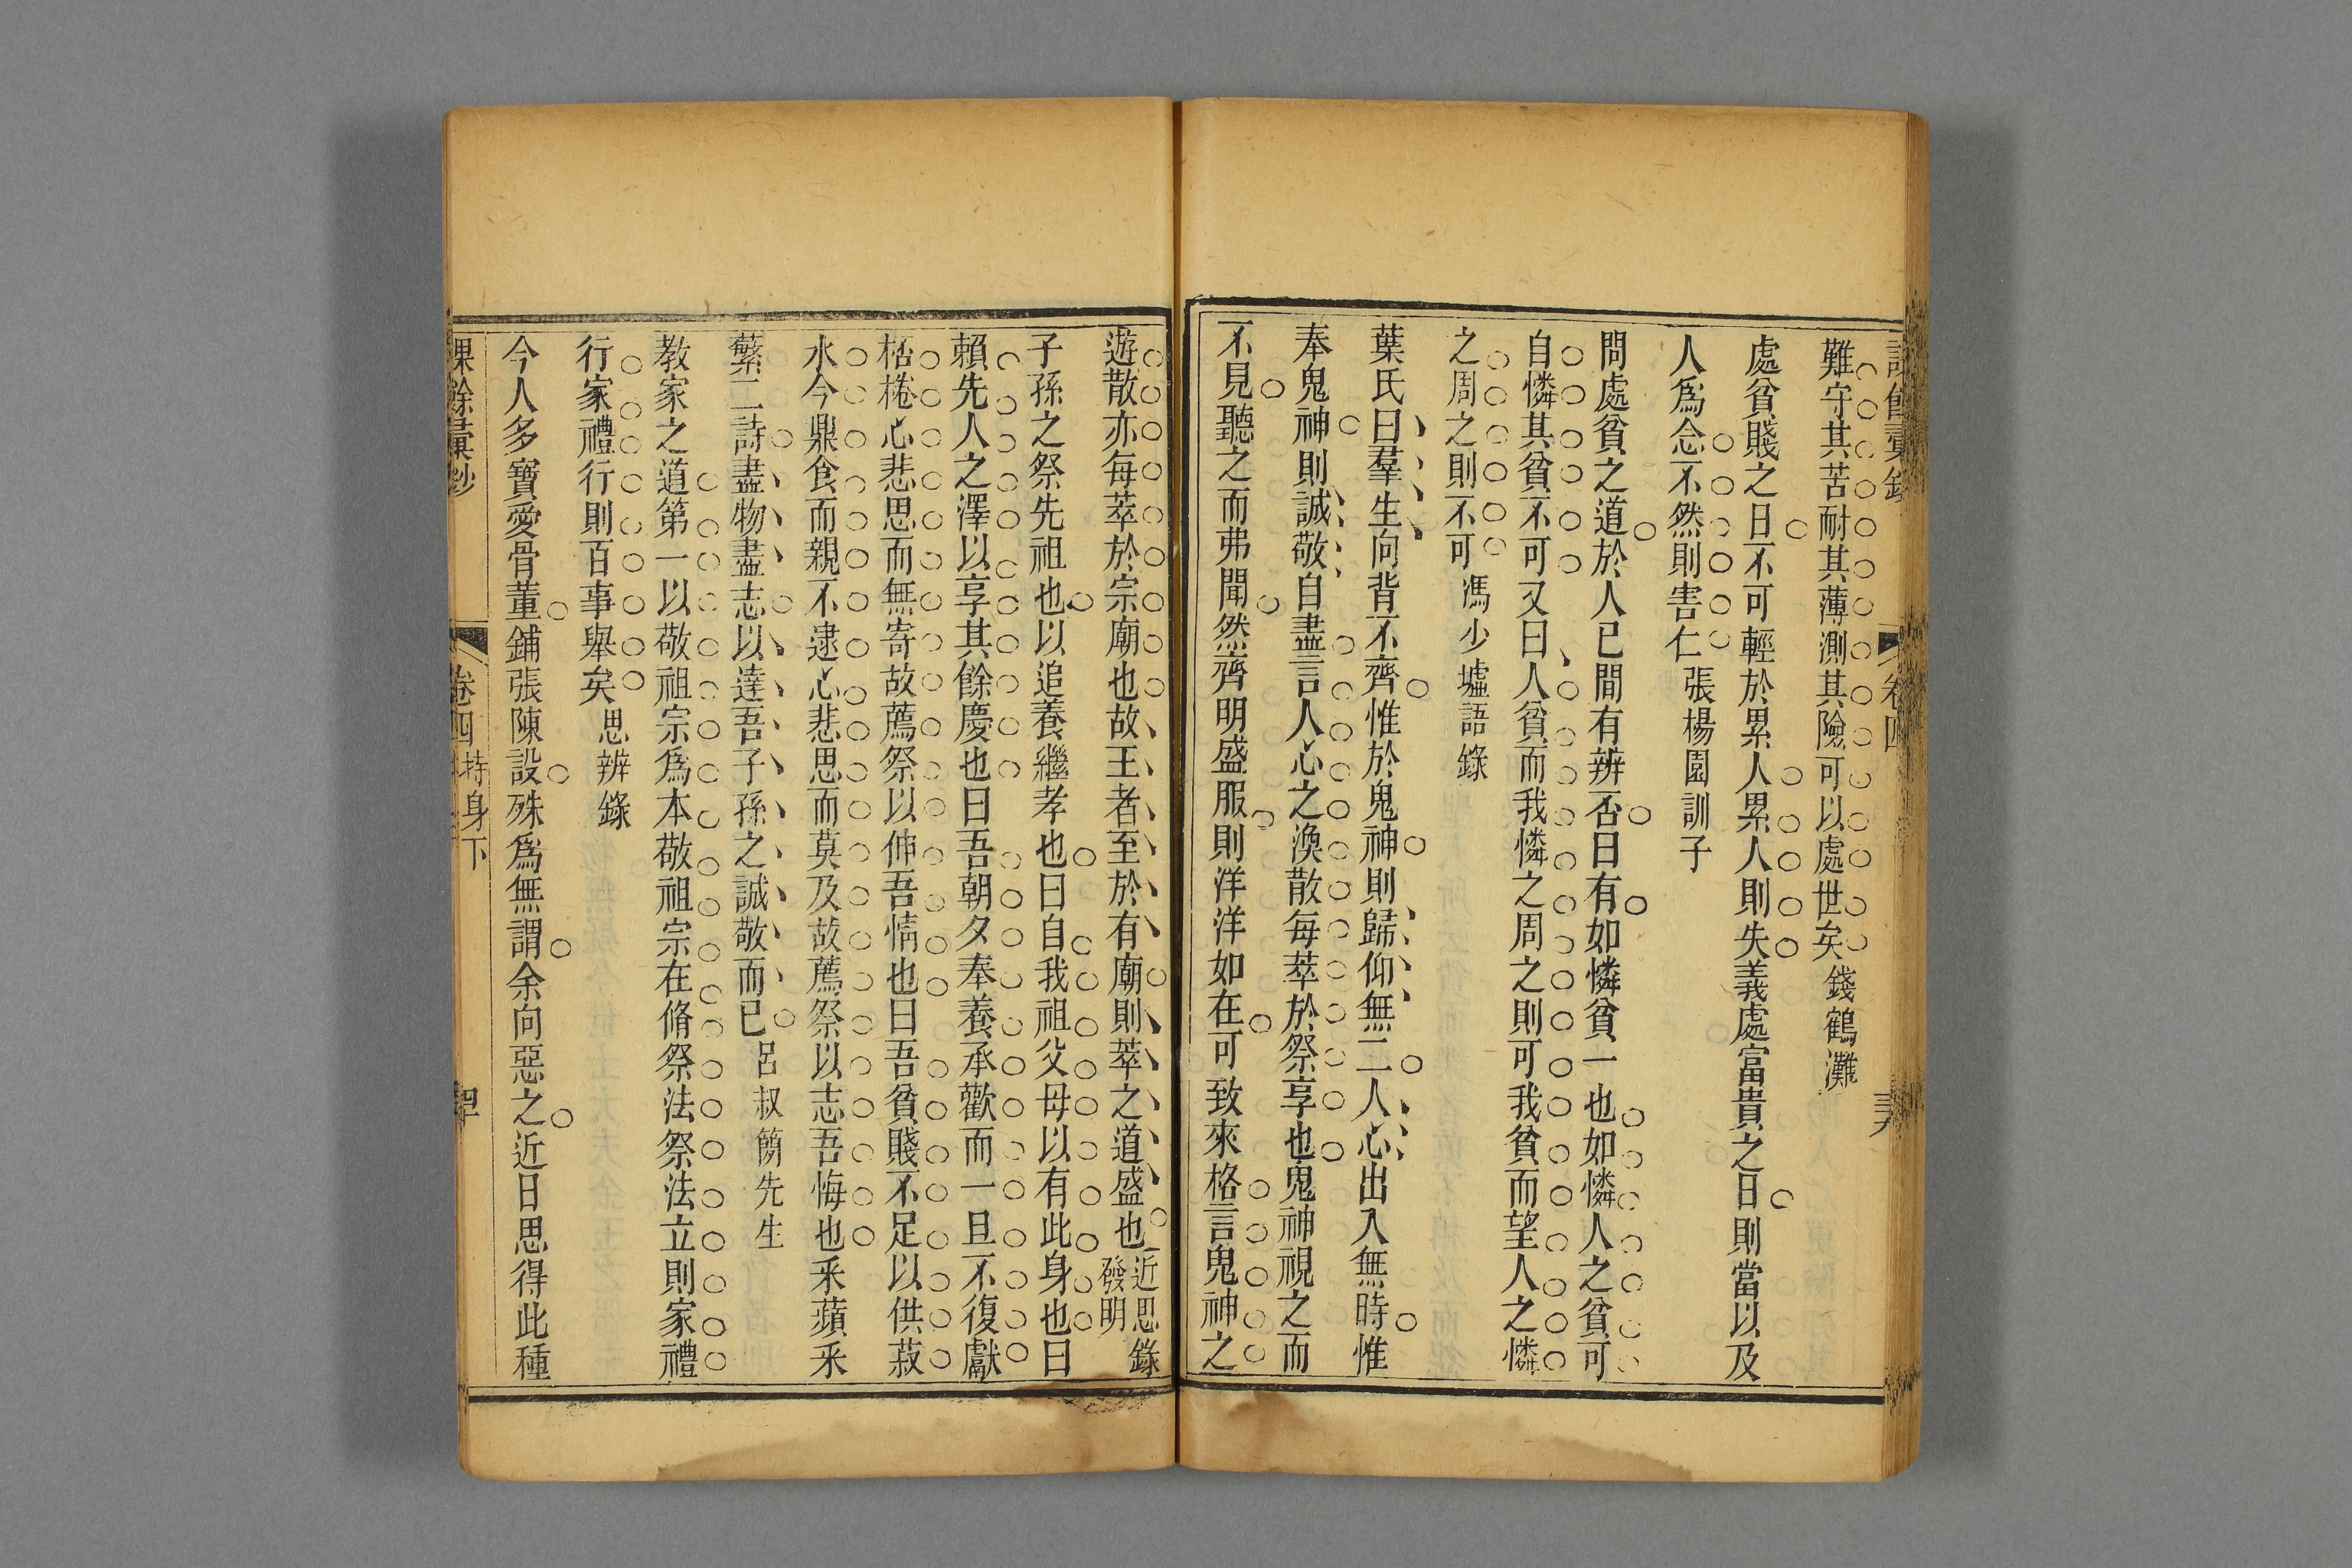 難守其苦耐其薄測其險可以處世矣錢鶴灘
處貧賤之日不可輕於累人累人則失義處富貴之日則當以及
人爲念不然則害仁張楊園訓子
問處貧之道於人已間有辨否曰有如憐貧一也如憐人之貧可
自憐其貧不可又曰人貧而我憐之周之則可我貧而望人之憐
之周之則不可馮少墟語錄
葉氏曰羣生向背不齊惟於鬼神則歸仰無二人心出入無時惟
奉鬼神則誠敬自盡言人心之渙散每萃於祭享也鬼神視之而
不見聽之而弗聞然齊明盛服則洋洋如在可致來格言鬼神之
遊散亦每萃於宗廟也故王者至於有廟則萃之道盛也近思錄發明
子孫之祭先祖也以追養繼孝也曰自我祖父母以有此身也曰
賴先人之澤以享其餘慶也曰吾朝夕奉養承歡而一旦不復獻
栝棬心悲思而無寄故薦祭以伸吾情也曰吾貧賤不足以供菽
水今鼎食而親不逮心悲思而莫及故薦祭以志吾悔也采蘋采
蘩二詩盡物盡志以達吾子孫之誠敬而已呂叔簡先生
教家之道第一以敬祖宗爲本敬祖宗在脩祭法祭法立則家禮
行家禮行則百事舉矣思辨錄
今人多寶愛骨董鋪張陳設殊爲無謂余向惡之近日思得此種
課餘彙鈔
卷四
持身下